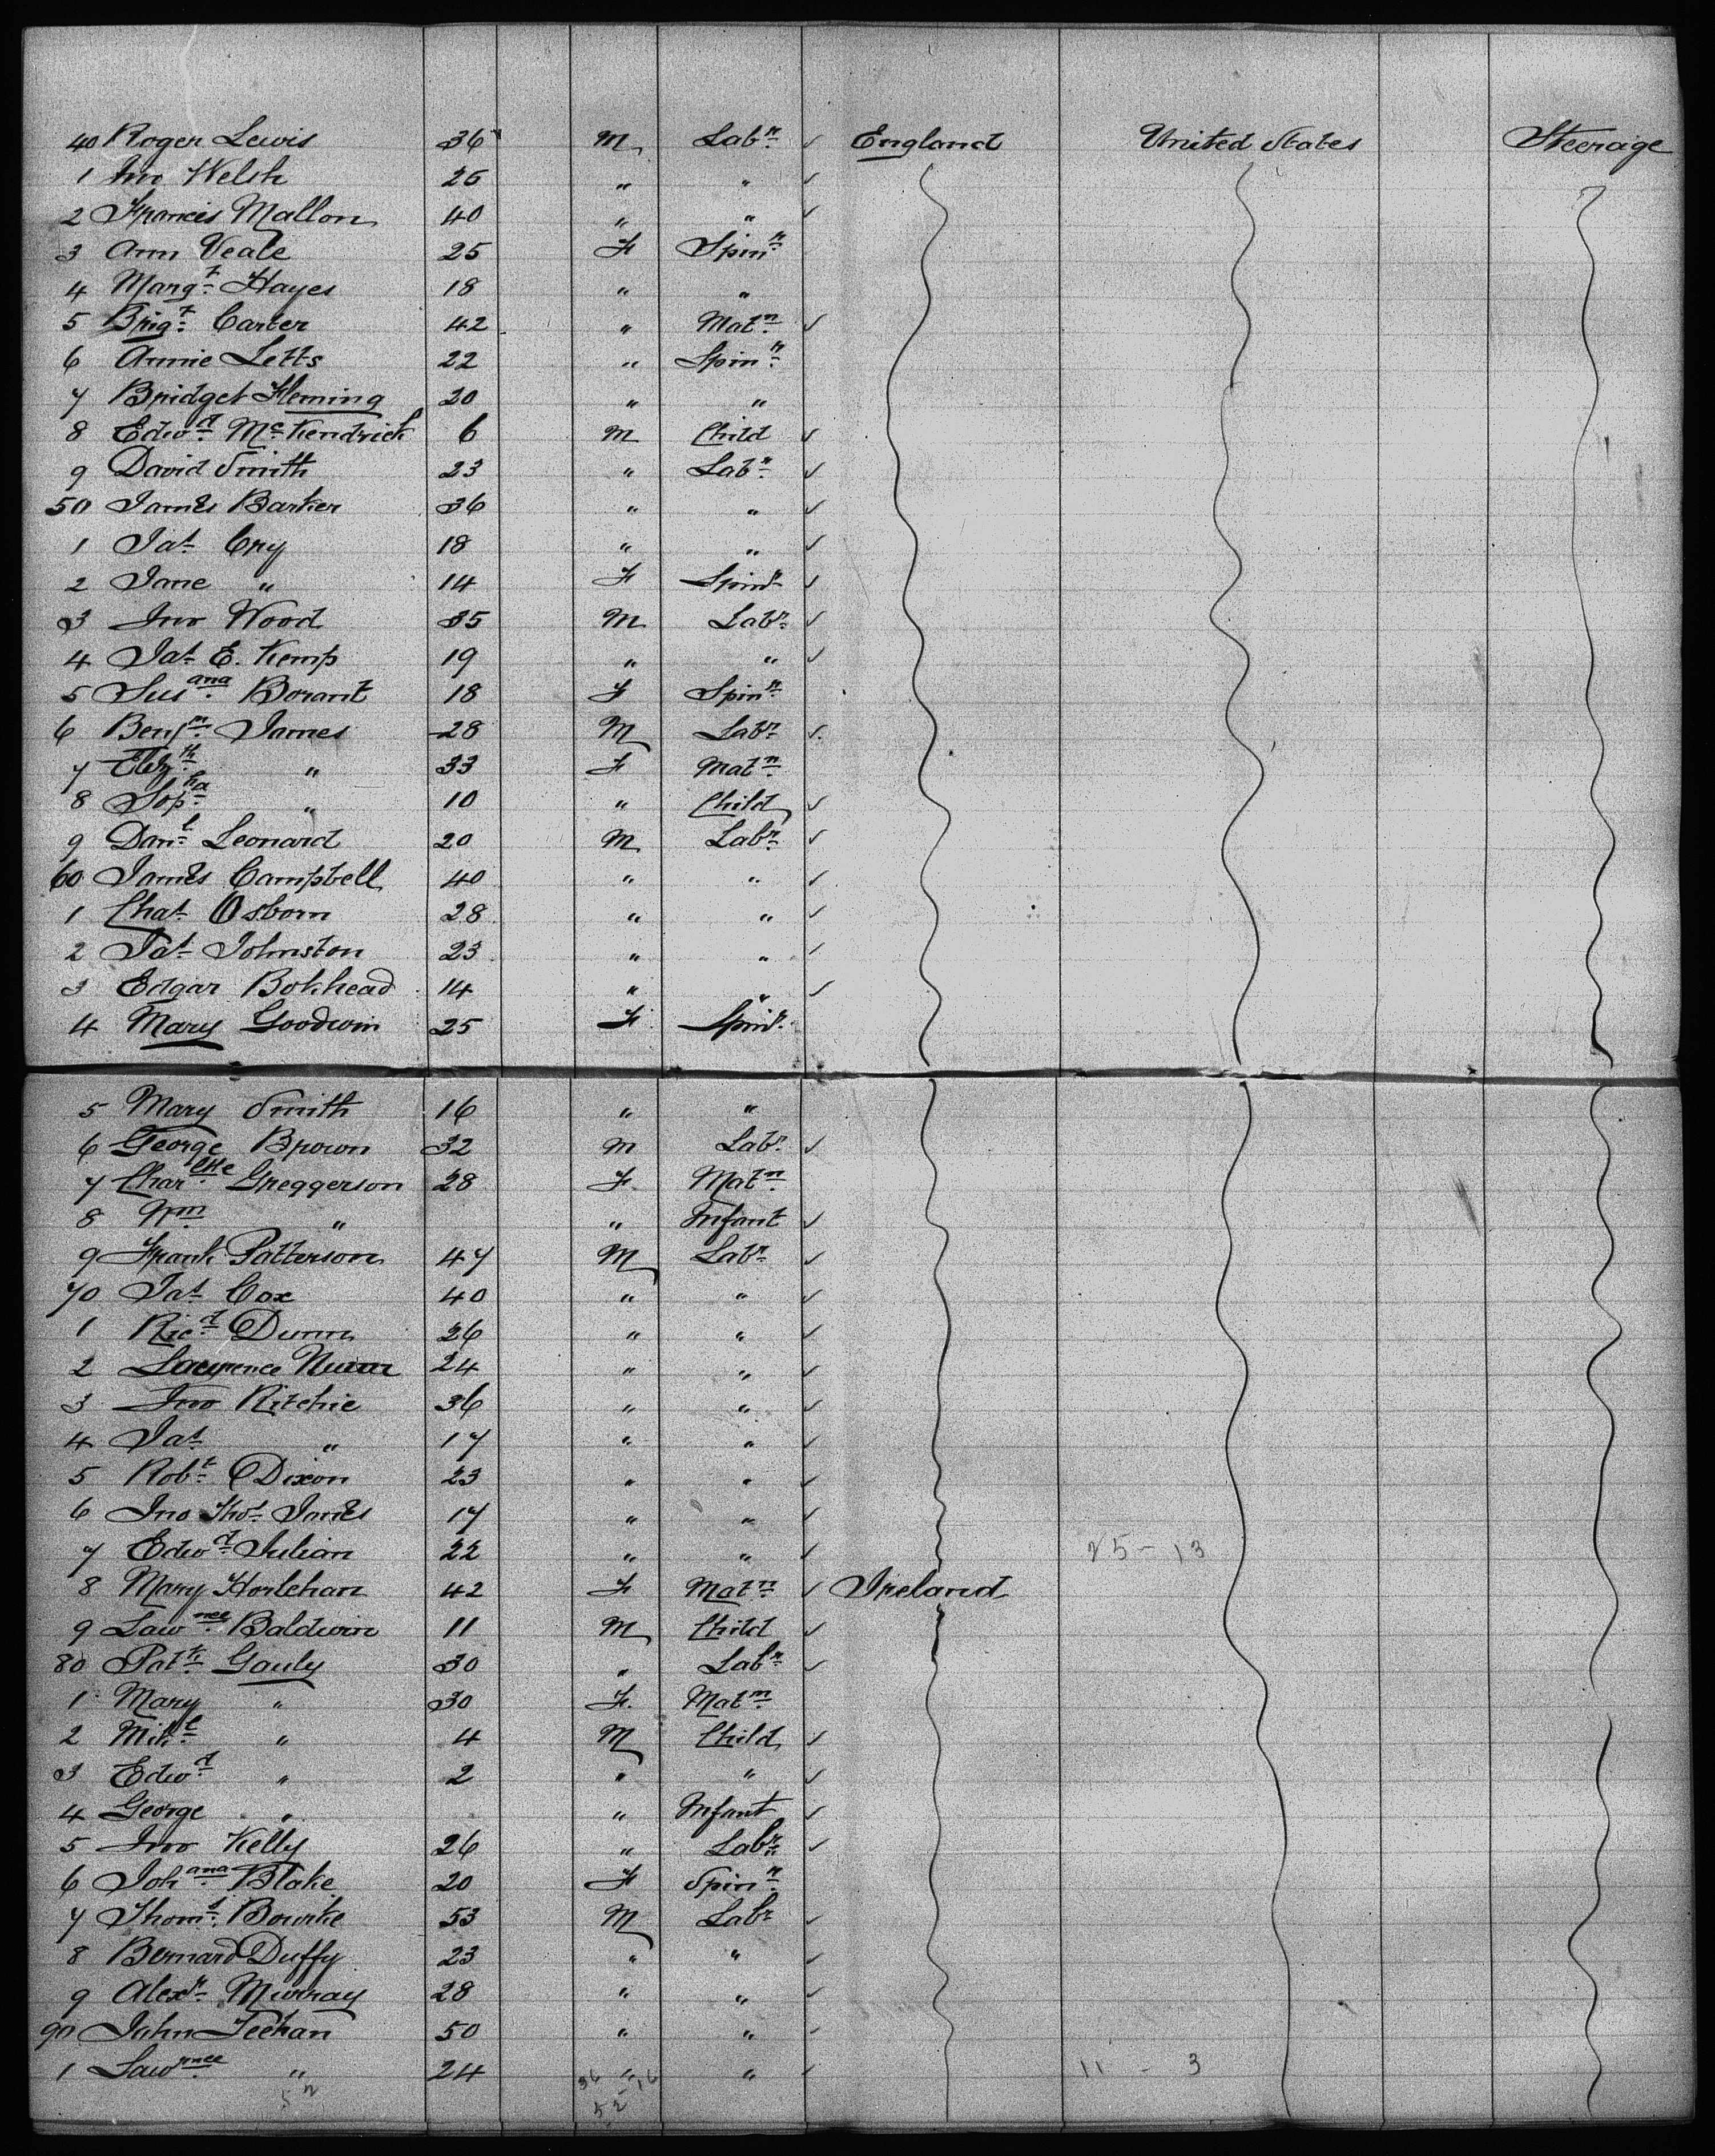 40 Roger Lewis 36 M Labr England United States Steerage
1 Jno Welsh 25 " "
2 Francis Mallon 40 " "
3 Ann Veale 25 F Spinr
4 Margt Hayes 18 " "
5 Brigt Carter 42 " Matn
6 Annie Letts 22 " Spinr
7 Bridget Fleming 20 " "
8 Edwd McKendrick 6 M Child
9 David Smith 23 " Labr
50 James Barker 36 " "
1 Jas Cry 18 " "
2 Jane " 14 F Spinr
3 Jno Wood 35 M Labr
4 Jas E. Kemp 19 " "
5 Susana Borant 18 F Spinr
6 Benjm James 28 M Labr
7 Elizth " 33 F Matn
8 Sopha " 10 " Child
9 Danl Leonard 20 M Labr
60 James Campbell 40 " "
1 Chas Osborn 28 " "
2 Jas Johnston 23 " "
3 Edgar Bokhead 14 " "
4 Mary Goodwin 25 F Spinr
5 Mary Smith 16 " "
6 George Brown 32 M Labr
7 Charltte Greggerson 28 F Matn
8 Wm " " Infant
9 Frank Patterson 47 M Labr
70 Jas Cox 40 " "
1 Ricd Dunn 26 " "
2 Lawrence 24 " "
3 Jno Ritchie 36 " "
4 Jas " 17 " "
5 Robt Dixon 23 " "
6 Jno Thos James 17 " "
7 Edwd Julian 22 " " 25 - 13
8 Mary Horlehan 42 F Matn Ireland
9 Lawnce Baldwin 11 M Child
80 Patk Gauly 30 " Labr
1 Mary " 30 F. Matn
2 Mihl " 4 M Child
3 Edwd " 2 " "
4 George " " Infant
5 Jno Kelly 26 " Labr
6 Johana Blake 20 F Spinr
7 Thoms Bourke 53 M Labr
8 Bernard Duffy 23 " "
9 Alexr Murray 28 " "
90 John Feehan 50 " "
1 Lawrnce " 24 " " 11 - 3
52 36 - 16
52